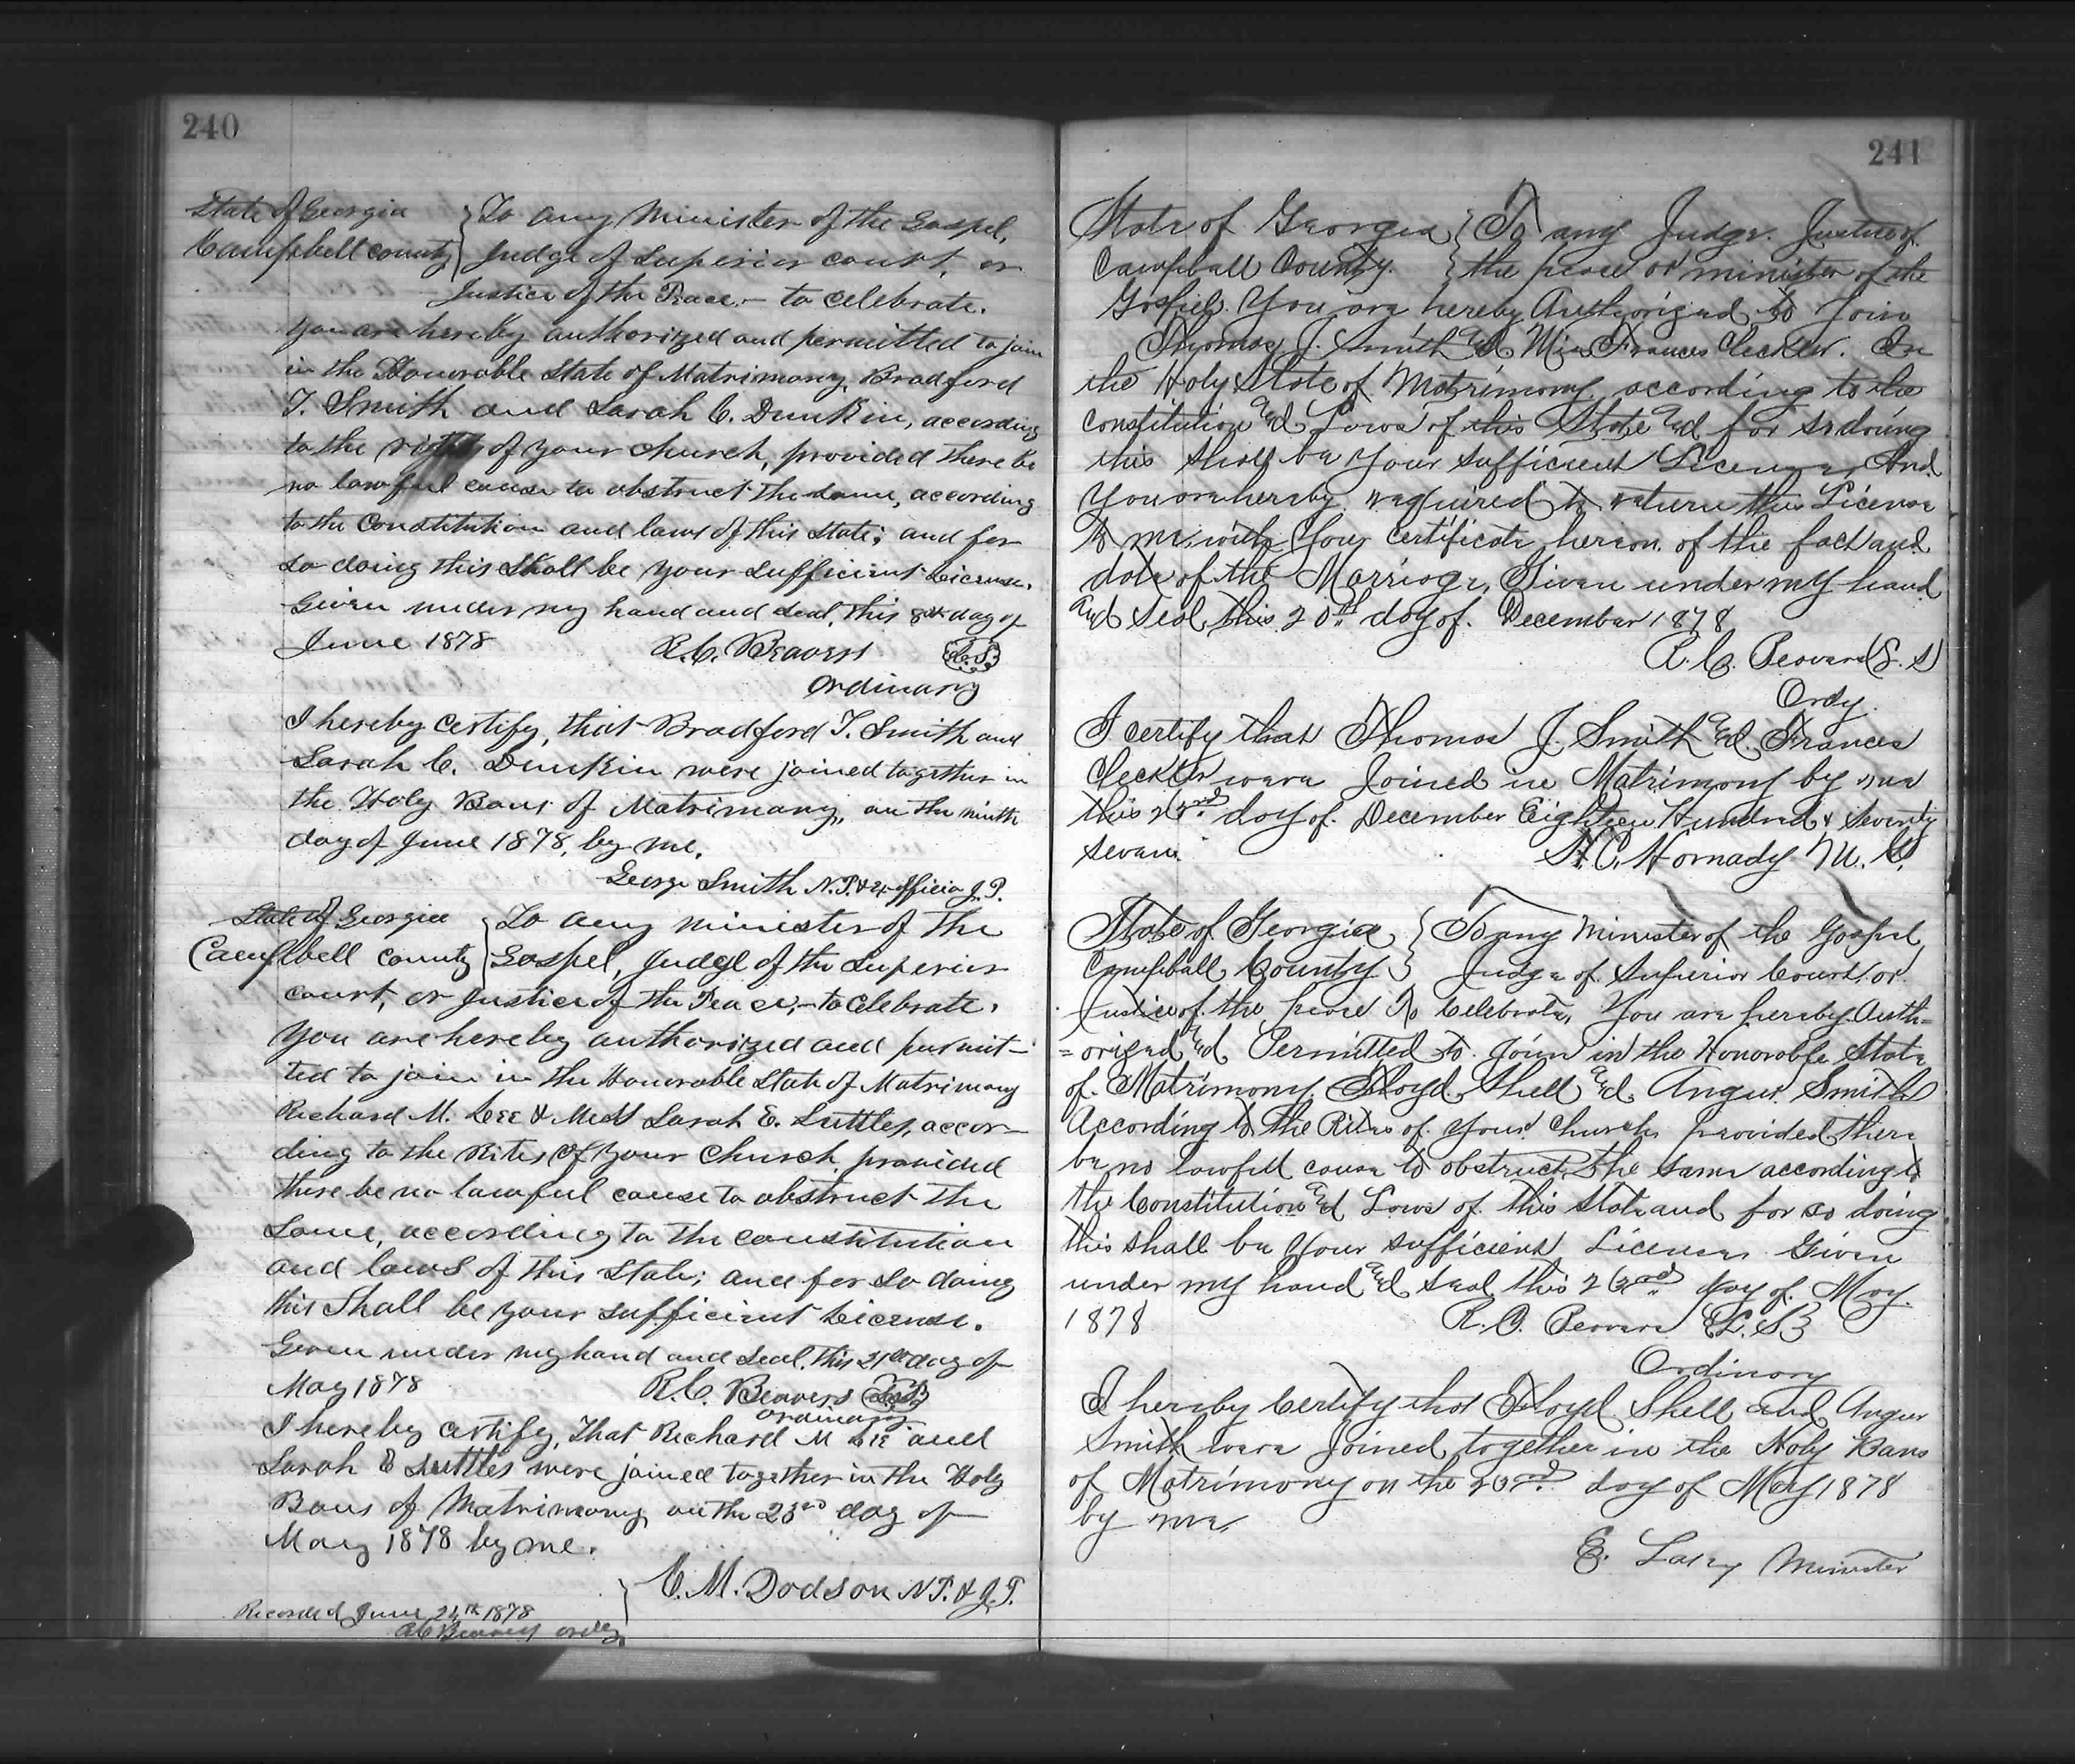 240
State of Georgia } To any Minister of the Gospel,
Campbell county } Judge of Superior court, or
Justice of the Peace.- to celebrate.
You are hereby authorized and permitted to join
in the Honorable State of Matrimony, Bradford
T. Smith and Sarah C. Dunkin, according
to the rights of your church, provided there be
no lawful cause to obstruct the same, according
to the Constitution and laws of this State; and for
so doing this shall be your sufficient License.
Given under my hand and seal, this 8th day of
June 1878 R.C. Beavers (L.S.)
Ordinary
I hereby certify, that Bradford T. Smith and
Sarah C. Dunkin were joined together in
the Holy Bans of Matrimony, on the ninth
day of June 1878, by me.
George Smith N.P. & ex officio J.P.
State of Georgia } To any minister of the
Campbell county } Gospel, Judge of the Superior
court, or Justice of the Peace,- to celebrate.
You are hereby authorized and permit-
ted to join in the Honorable State of Matrimony
Richard M. Lee & Miss Sarah E. Suttles, accor-
ding to the Rites of your Church, provided
there be no lawful cause to obstruct the
same, according to the constitution
and laws of this State; and for so doing
this shall be your sufficient License.
Given under my hand and seal, this 21st day of
May 1878 R.C. Beavers (L.S.)
ordinary
I hereby certify, that Richard M Lee and
Sarah E Suttles were joined together in the Holy
Bans of Matrimony on the 23rd day of
May 1878 by me.
C. M. Dodson N.P. & J.P.
Recorded June 24th 1878
R C Beavers ordy
241
State of Georgia } To any Judge. Justice of
Campball County. } the peace or minister of the
Gospel. You are hereby Authorized to Join
Thomas J. Smith and Miss Frances In
the Holy State of Matrimony according to the
constitution and Laws of this State and for so doing
this shall be Your sufficient License, And
You are hereby required to return this License
to me, with Your Certificate hereon of the fact and
date of the Marriage, Given under my hand
and Seal, this 20th day of. December 1878
R. C. Beavers (L. S)
Ordy.
I certify that Thomas J. Smith and Frances
were Joined in Matrimony by me
this 23rd day of. December Eighteen Hundred & Seventy
seven. H. C. Hornady M. G.
State of Georgia } To any Minister of the Gospel,
Campball County } Judge of. Superior Court, or
Justice of. the peace To Celebrate, You are hereby Auth=
=orized and Permitted to. Join in the Honorable State
of. Matrimony. Floyd. Shell and. Angus. Smith
According to the Rites of. Your. Church, provided there
be no lawfull cause to obstruct, the same according to
the Constitution and Laws of. this State and for so doing
this shall be Your sufficient License Given
under my hand and seal this 23rd day of. May.
1878 R. C. Beavers (L. S)
Ordinary
I hereby Certify that Floyd Shell and Angus
Smith were Joined together in the Holy Bans
of Matrimony on the 23rd. day of May 1878
by me,
E. Minister